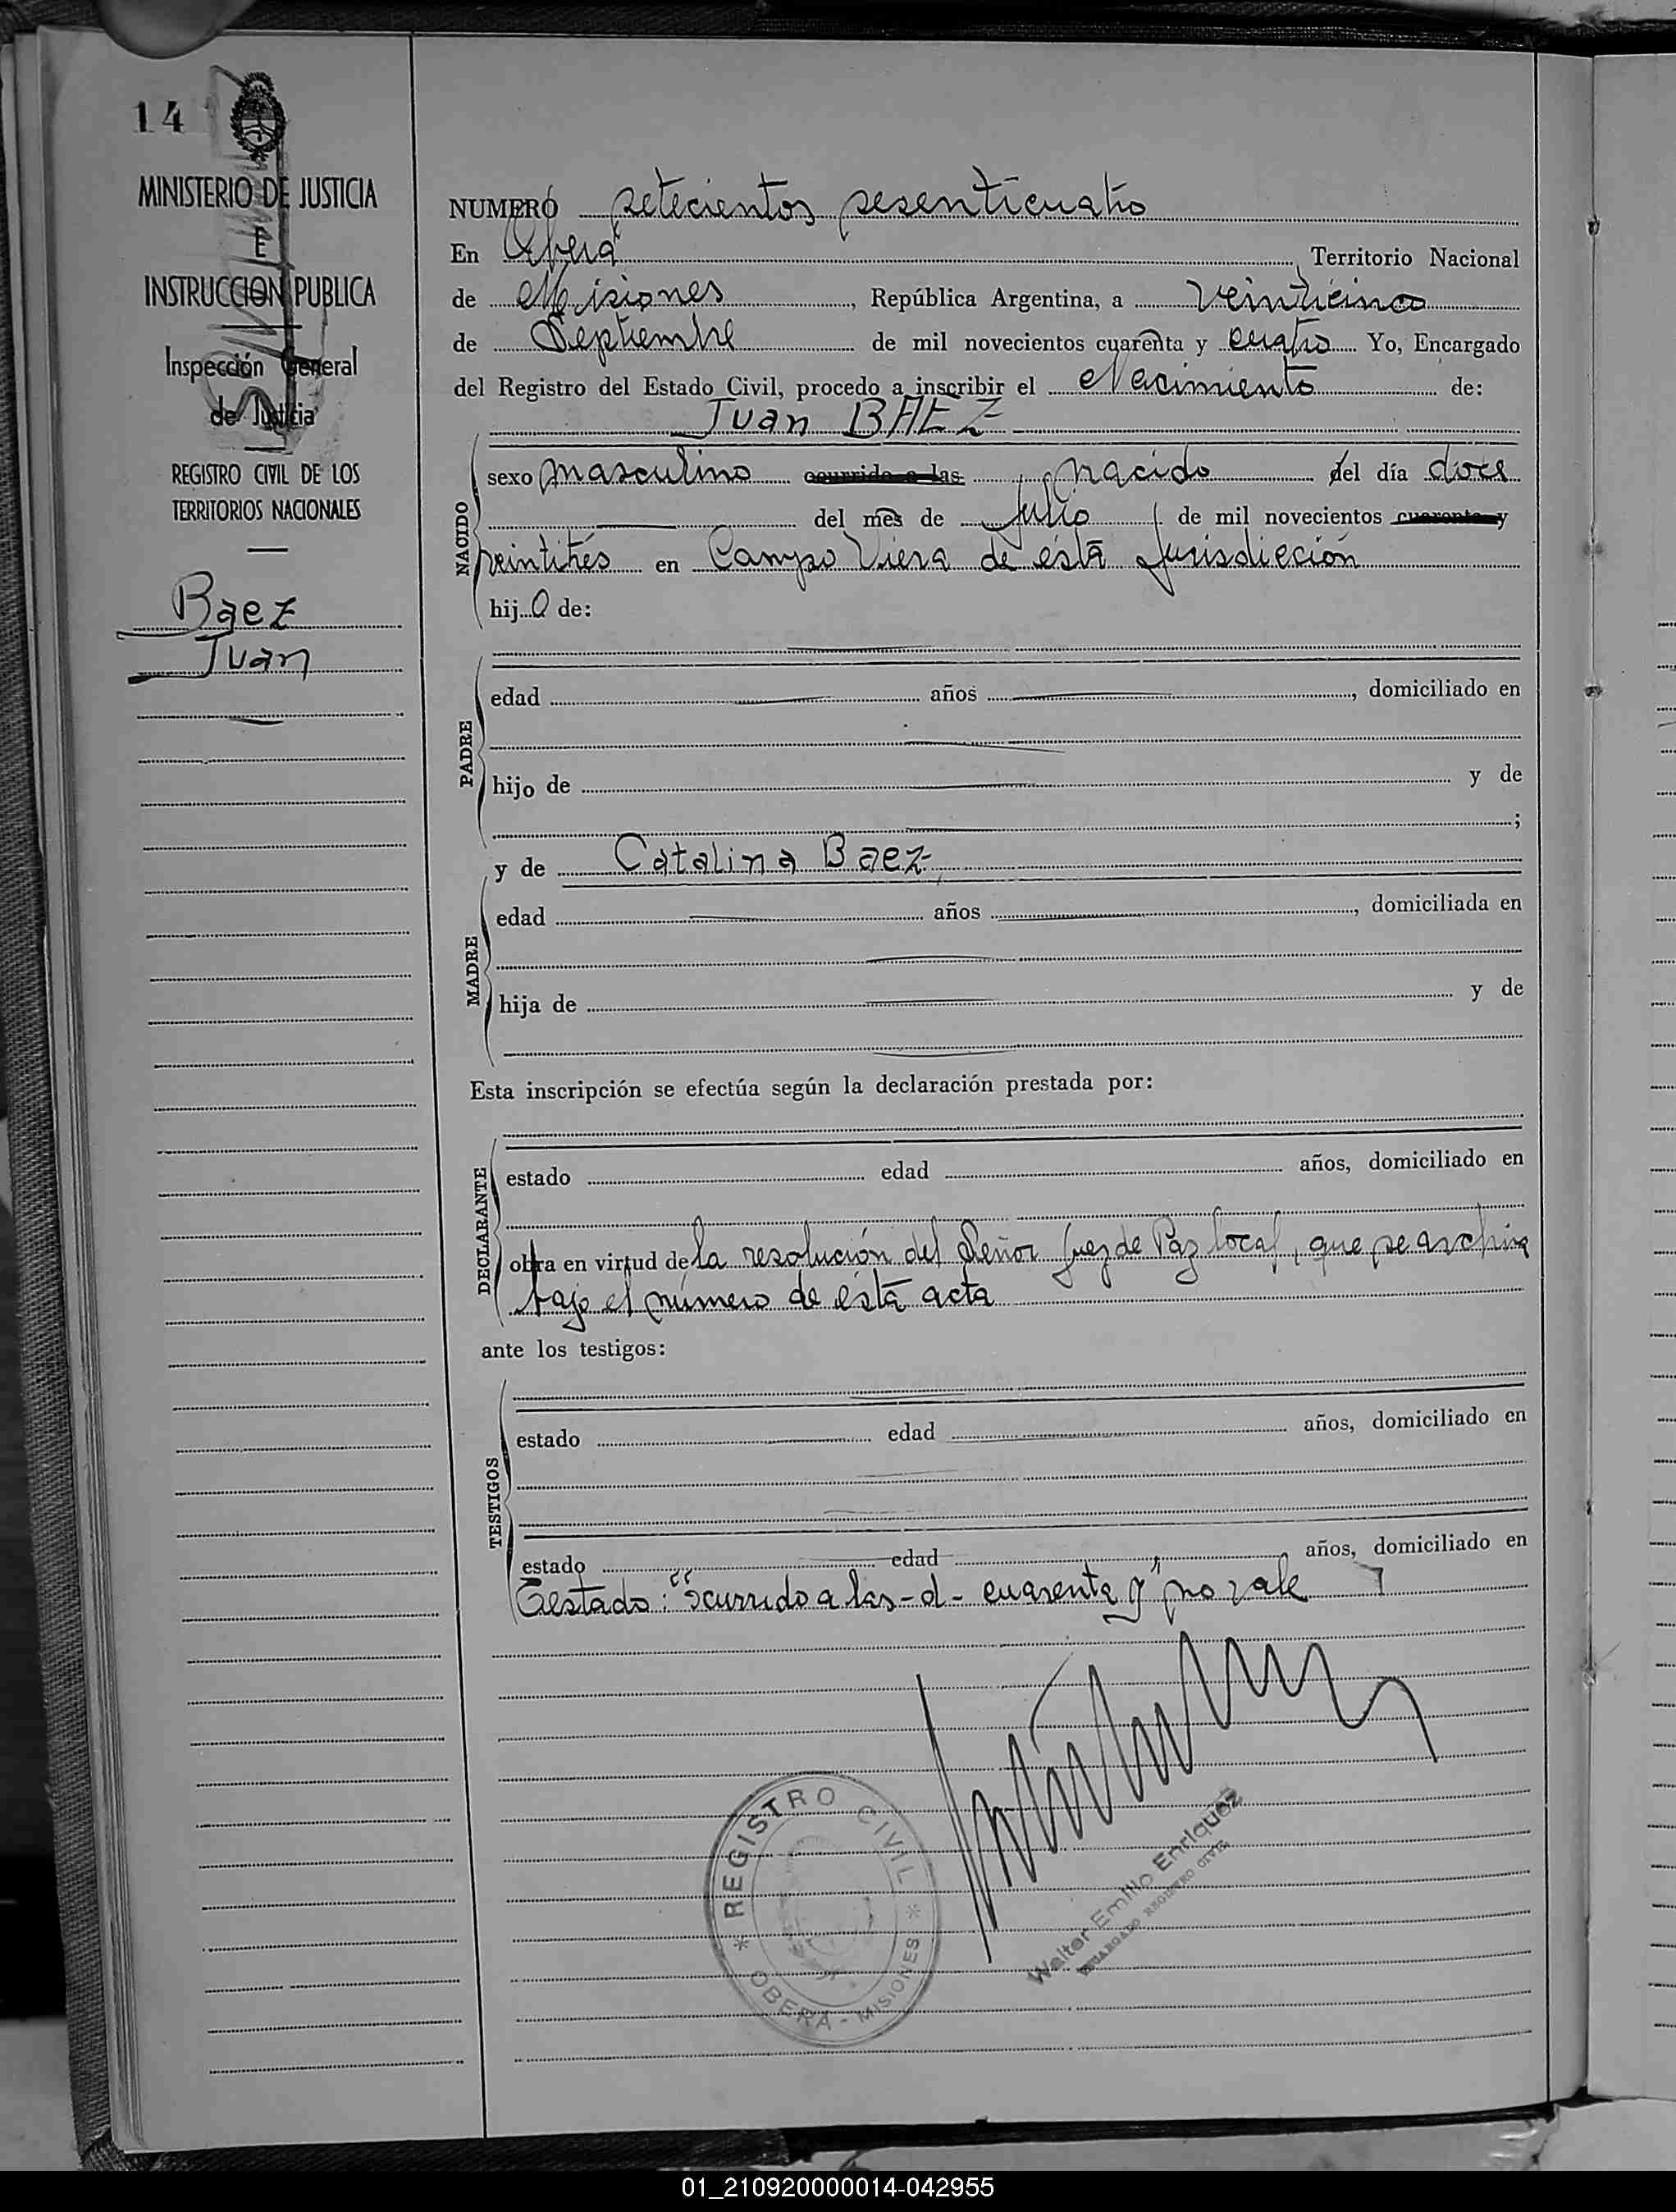 14
MINISTERIO DE JUSTICIA
E
INSTRUCCION PUBLICA
Inspección General
de Justicia
REGISTRO CIVIL DE LOS
TERRITORIOS NACIONALES
Baez
Juan
NUMERO setecientos sesenticuatro
En Oberá Territorio Nacional
de Misiones, República Argentina, a veinticinco
de Septiembre de mil novecientos cuarenta y cuatro Yo, Encargado
del Registro del Estado Civil, procedo a inscribir el Nacimiento de:
Juan BAEZ
NACIDO
sexo masculino ocurrido a las nacido del día doce
del mes de Julio de mil novecientos cuarenta y
veintitrés en Campo Viera de ésta Jurisdicción
hijo de:
PADRE
edad años, domiciliado en
hijo de y de
;
y de Catalina Baez
MADRE
edad años, domiciliada en
hija de y de
Esta inscripción se efectúa según la declaración prestada por:
DECLARANTE
estado edad años, domiciliado en
obra en virtud de la resolución del Señor Juez de Paz local, que se archiva
bajo el número de ésta acta
ante los testigos:
TESTIGOS
estado edad años, domiciliado en
estado edad años, domiciliado en
Testado: "ocurrido a las-d- cuarenta y" no vale
* REGISTRO CIVIL *
OBERÁ - MISIONES
Walter Emilio Enriquez
ENCARGADO REGISTRO CIVIL
01_210920000014-042955